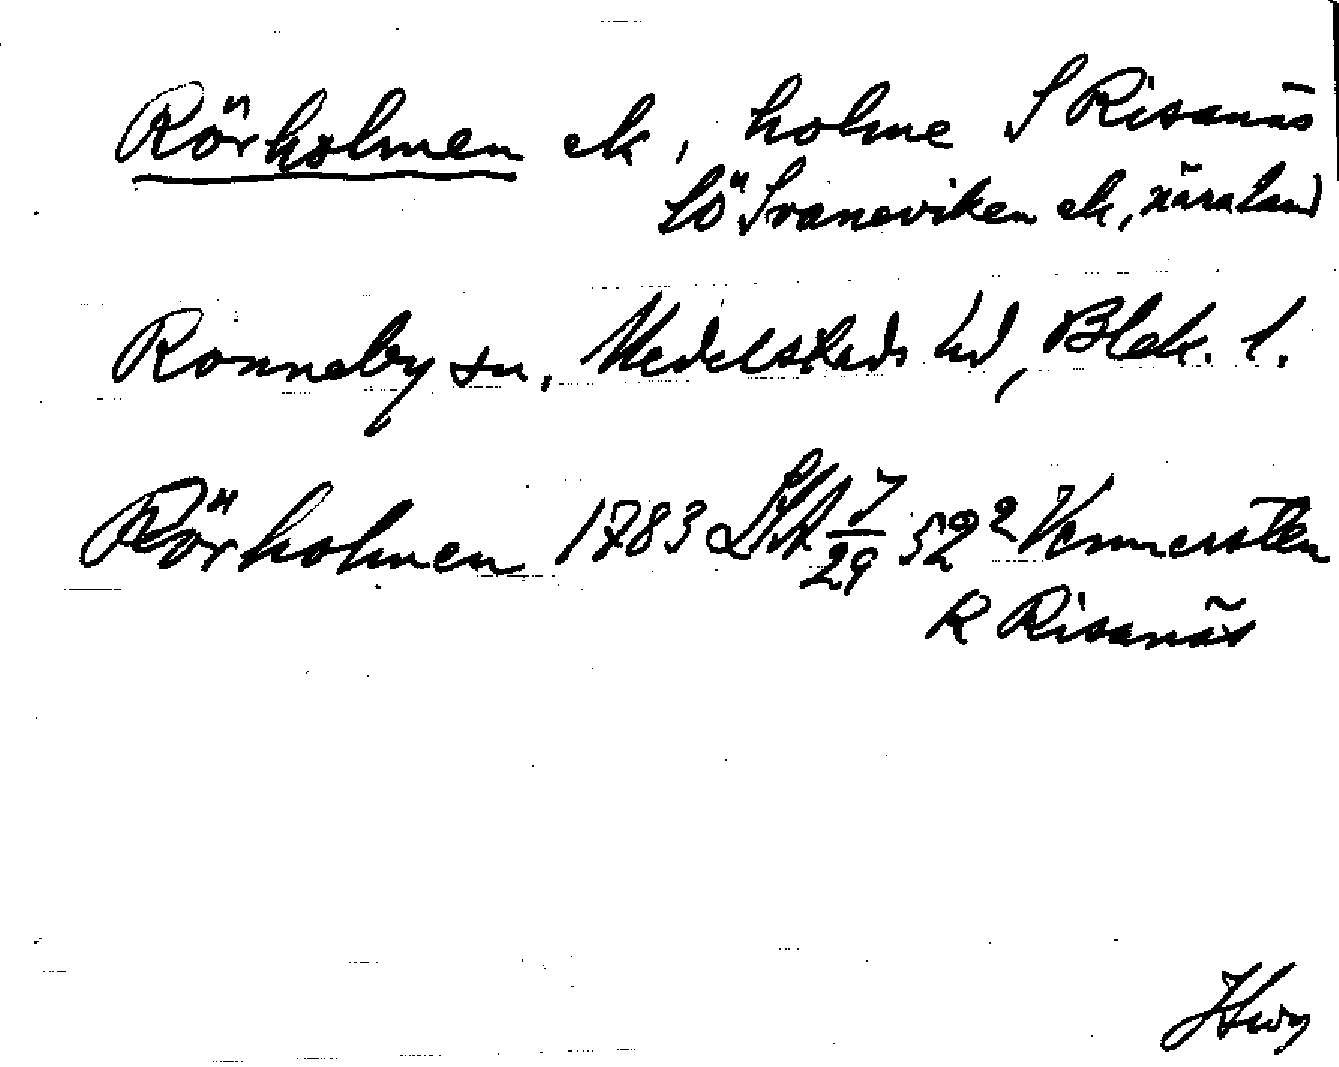 Rörholmen ek, holme S Risanäs
SÖ Svaneviken ek, nära land
Ronneby sn, Medelstads hd, Blek. l.
Rörholmen 1783 LSA 7/29 52² Vennersten
R Risanäs